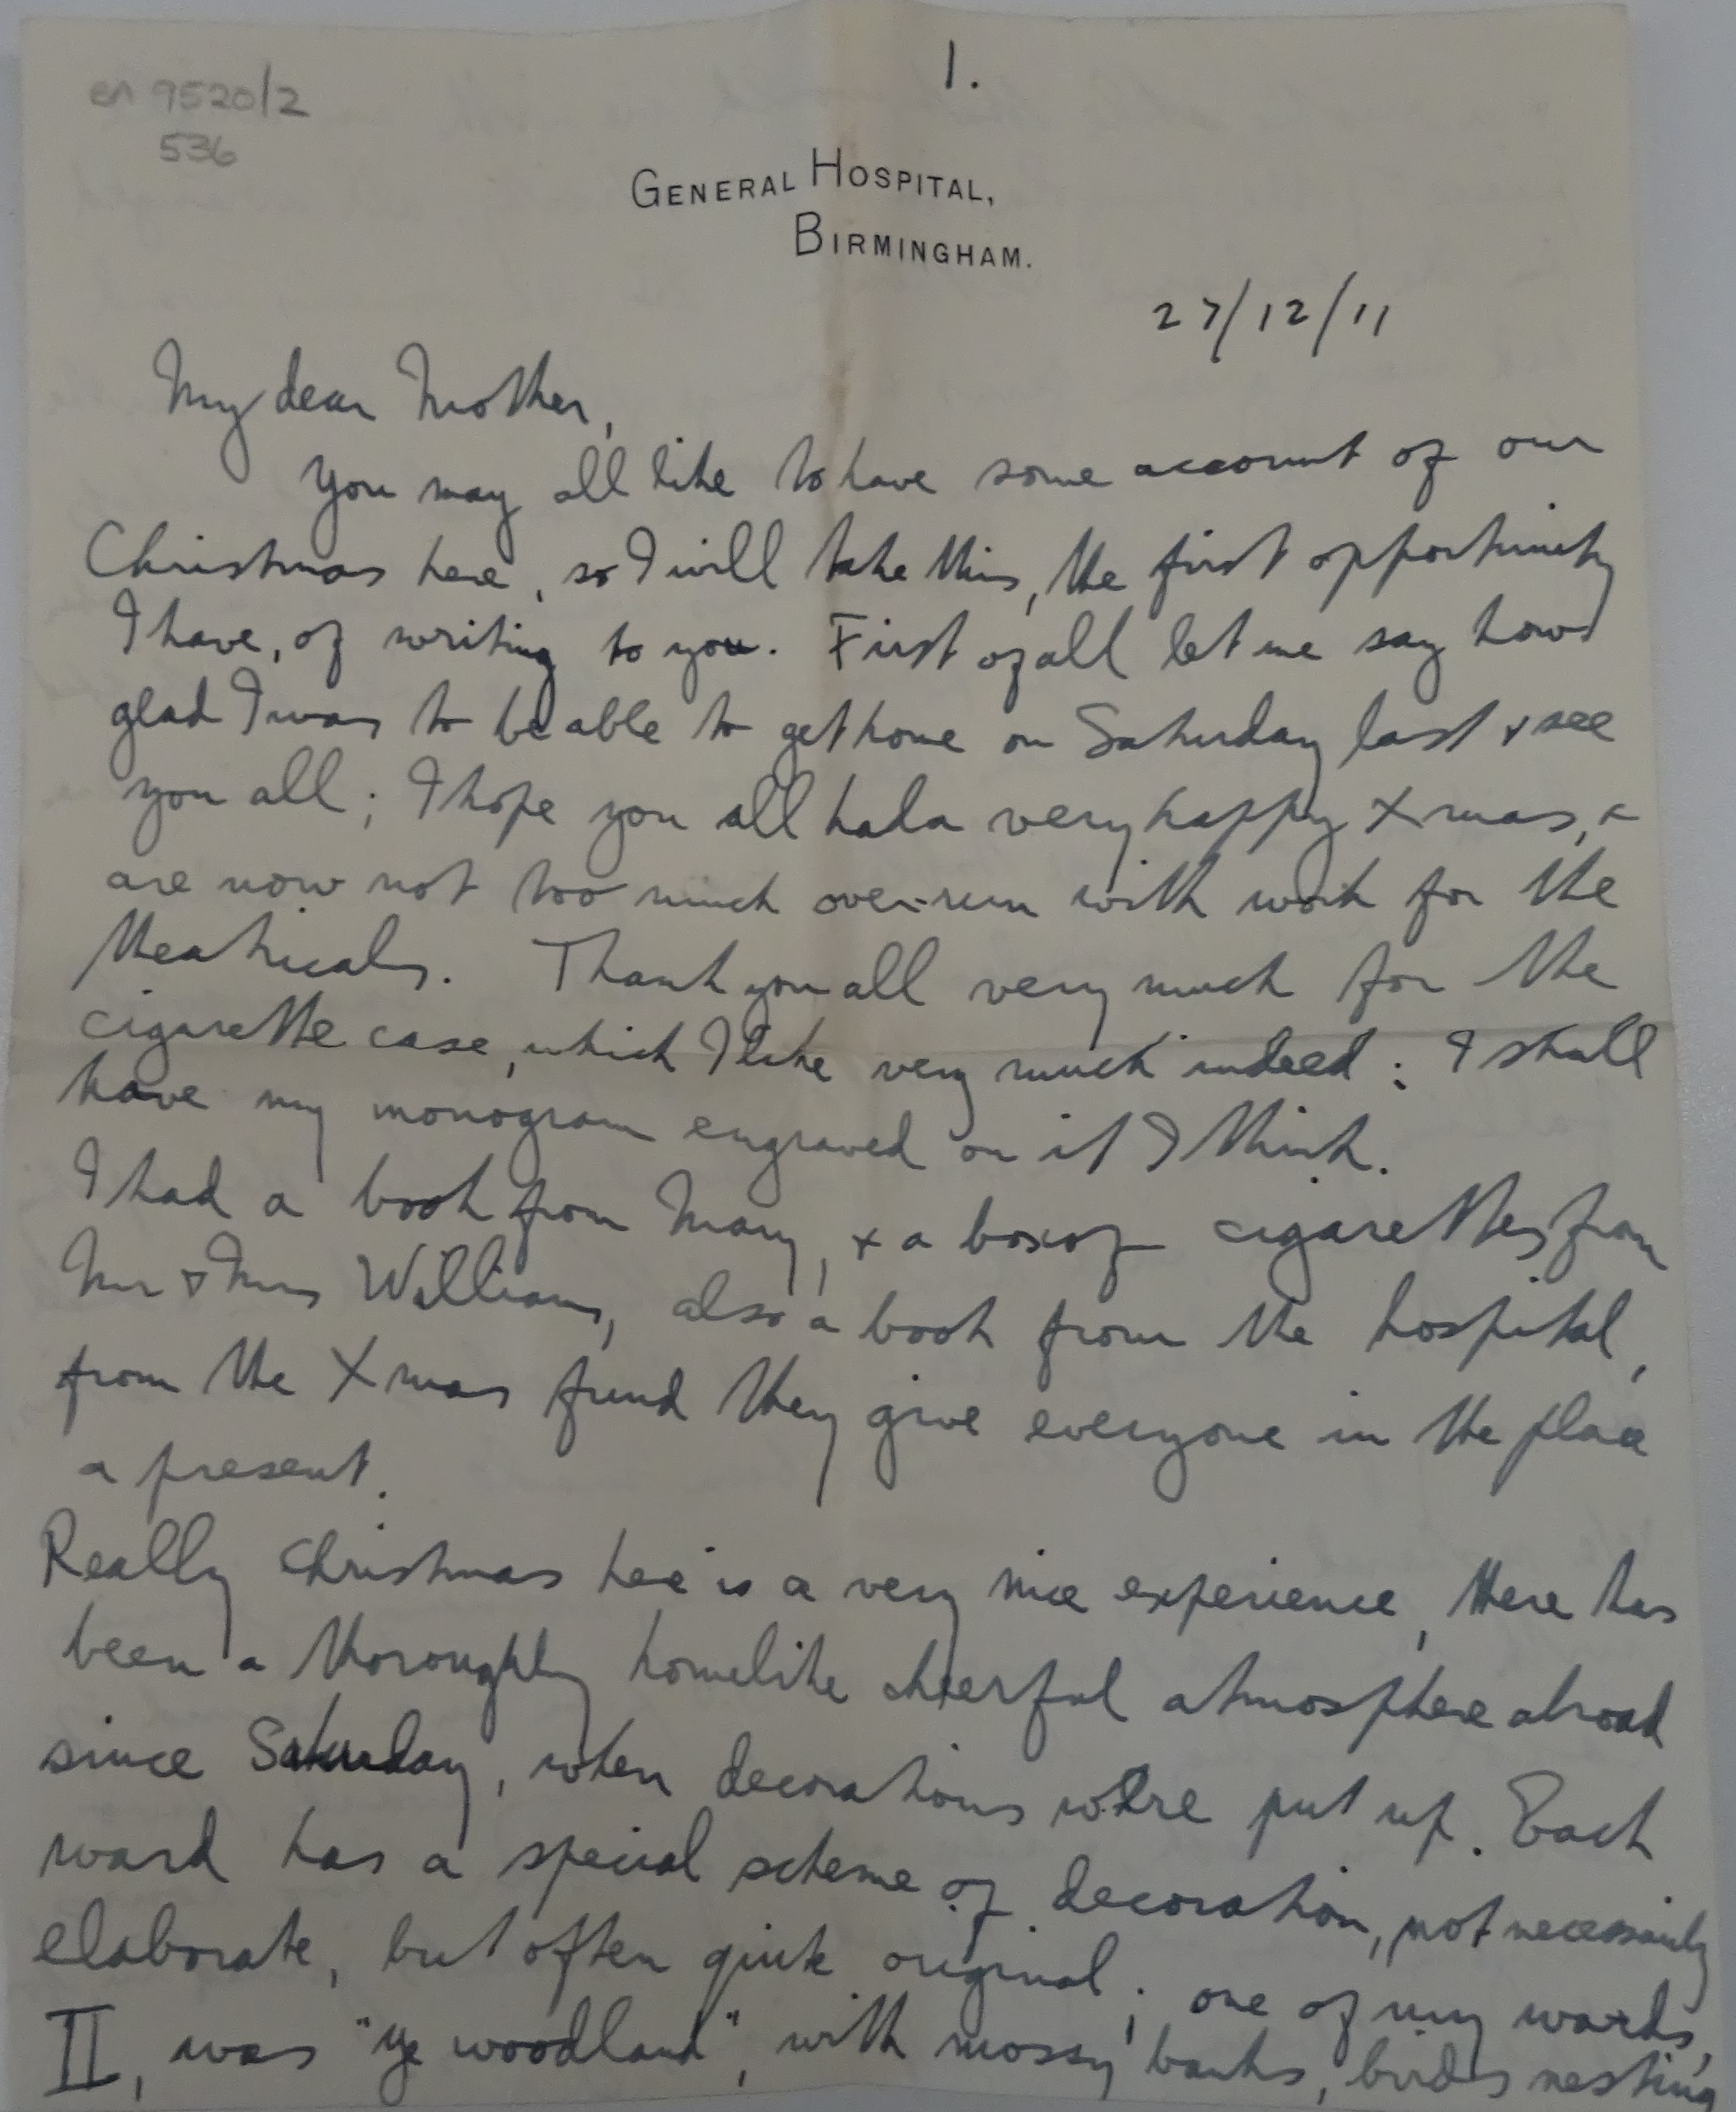 1.
en 9520/2
536
GENERAL HOSPITAL,
BIRMINGHAM.
27/12/11
My dear Mother,
You may all like to have some account of our
Christmas here, so I will take this, the first opportunity
I have, of writing to you. First of all let me say how
glad I was to be able to get home on Saturday last & see
you all; I hope you all had a very happy Xmas, &
are now not too much over-run with work for the
theatricals. Thank you all very much for the
cigarette case, which I like very much indeed: I shall
have my monogram engraved on it I think.
I had a book from Mary, & a box of cigarettes from
Mr & Mrs Williams, also a book from the hospital,
from the Xmas fund they give everyone in the place
a present.
Really Christmas here is a very nice experience, there has
been a thoroughly homelike cheerful atmosphere abroad
since Saturday, when decorations were put up. Each
ward has a special scheme of decoration, not necessarily
elaborate, but often quite original; one of my wards,
II, was "ye woodland", with mossy banks, birds nesting